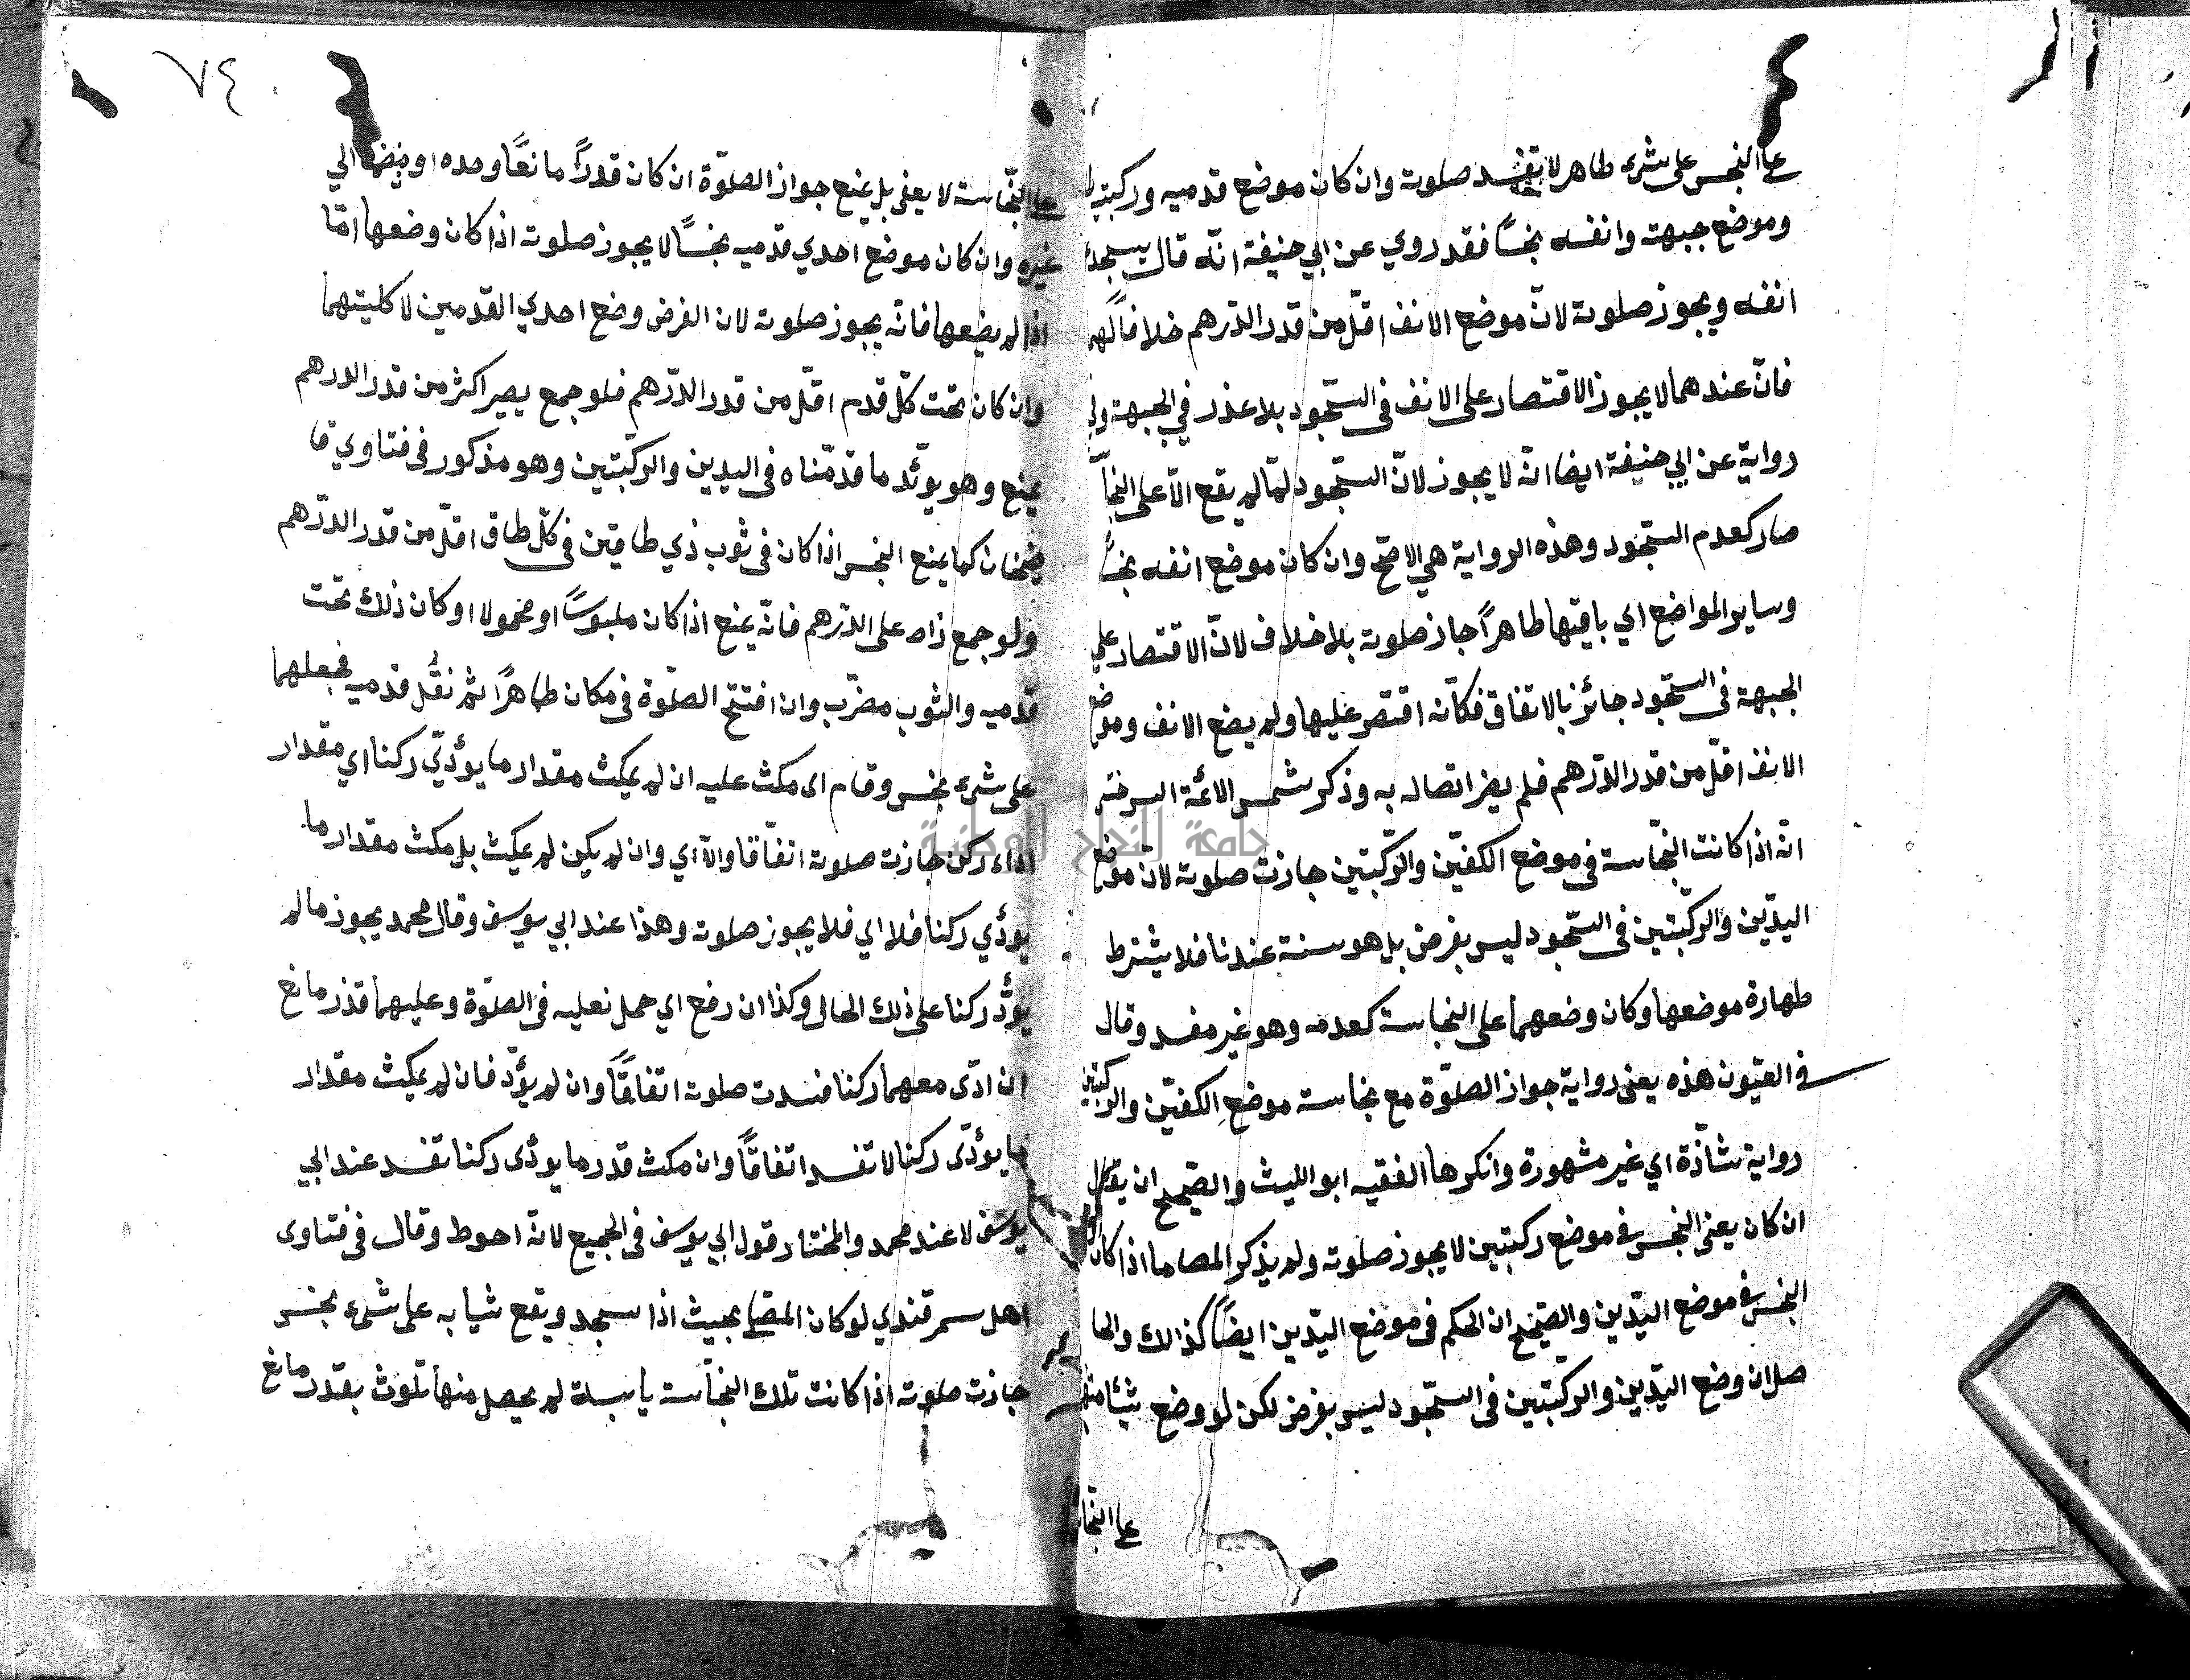 على النجس على شئ طاهر لا تفسد صلوته وان كان موضع قدميه وركبتيه
وموضع جبهته وانفه نجسًا فقد روي عن ابي حنيفة انّه قال يسجد
انفه ويجوز صلوته لانّ موضع الانف اقلّ من قدر الدّرهم خلافًا لهما
فانّ عندهما لا يجوز الاقتصار على الانف في السّجود بلا عذر في الجبهة و
رواية عن ابي حنيفة ايضا انّه لا يجوز لانّ السّجود لمّا لم يقع الاّ على النجا
صار كعدم السّجود وهذه الرواية هي الاصحّ وان كان موضع انفه نجسًا
وساير المواضع اي باقيها طاهرًا جاز صلوته بلا خلاف لانّ الاقتصار علي
الجبهة في السّجود جائز بالاتفاق فكانّه اقتصر عليها ولم يضع الانف وموضع
الانف اقلّ من قدر الدّرهم فلم يضر اتصاله به وذكر شمس الائمّة السرخسي
انّه اذا كانت النّجاسة في موضع الكفّين والرّكبتين جازت صلوته لانّ موضع
اليدّين والرّكبتين في السّجود ليس بفرض بل هو سنة عندنا فلا يشترط
طهارة موضعها وكان وضعهما على النجاسة كعدمه وهو غير مفسد وقال
في العيّون هذه يعني رواية جواز الصلوّة مع نجاسة موضع الكفّين والركبتين
رواية شاذّة اي غير مشهورة وانكرها الفقيه ابو الليث والصّحيح ان يقال
ان كان يعني النجس في موضع ركبتين لا يجوز صلوته ولم يذكر المص ما اذا كان
النجس في موضع اليّدين والصّحيح ان الحكم في موضع اليّدين ايضًا كذالك والحا
صل ان وضع اليّدين والرّكبتين في السّجود ليس بفرض لكن لو وضع شيئا منها
على النّجا
٧٤
على النّجاسة لا يعفى بل يمنع جواز الصلوّة ان كان قدرًا مانعًا وحده او بضمّها الي
غيره وان كان موضع احدي قدميه نجسًا لا يجوز صلوته اذا كان وضعها امّا
اذا لم يضعها فانّه يجوز صلوته لان الفرض وضع احدي القدمين لا كليتهما
وان كان تحت كلّ قدم اقلّ من قدر الدّرهم فلو جمع يصير اكثر من قدر الدرهم
يمنع وهو يؤيّد ما قدمّناه في اليدين والركّبتين وهو مذكور في فتاوي قا
ضيخان كما يمنع النجس اذا كان في ثوب ذي طاقين في كلّ طاق اقلّ من قدر الدّرهم
ولو جمع زاد على الدّرهم فانّه يمنع اذا كان ملبوسًا او محمولا او كان ذلك تحت
قدميه والثوب مضرّب وان افتتح الصلوّة في مكان طاهرًا ثمّ نقل قدميه فجعلهما
على شئ نجس وقام اى مكث عليه ان لم يمكث مقدار ما يؤدّي ركنا اي مقدار
اداء ركن جازت صلوته اتفّاقا والاّ اي وان لم يكن لم يمكث بل مكث مقدار ما
يؤدّي ركنا فلا اي فلا يجوز صلوته وهذا عند ابي يوسف وقال محمد يجوز ما لم
يؤدّ ركنا على ذلك الحال وكذا ان رفع اي حمل نعليه في الصلوّة وعليهما قذر مانع
ان ادّى معهما ركنا فسدت صلوته اتفاقًا وان لم يؤدّ فان لم يمكث مقدار
ما يؤدّى ركنا لا تفسد اتفاقًا وان مكث قدر ما يؤدّى ركنا تفسد عند ابي
يوسف لا عند محمد والمختار قول ابي يوسف في الجميع لانّه احوط وقال في فتاوى
اهل سمرقندي لو كان المصلي بحيث اذا سجد ويقع ثيابه على شئ نجس
جازت صلوته اذا كانت تلك النجّاسة يابسة لم يحصل منها تلوث بقدر مانع
جامعة النجاح الوطنية